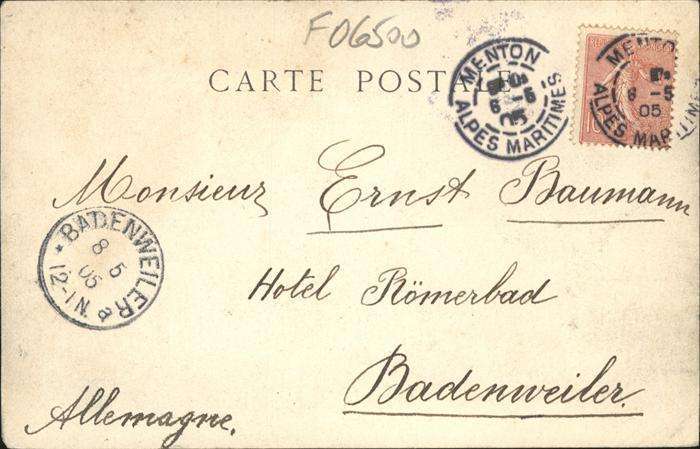 F06500
CARTE POSTALE
MENTON
6 -5
05
ALPES MARITIMES
MENTON
6 -5
05
ALPES MARITIMES
10
Monsieur Ernst Baumann
* BADENWEILER a
8 5
05
12-1N.
Hotel Römerbad
Badenweiler.
Allemagne.